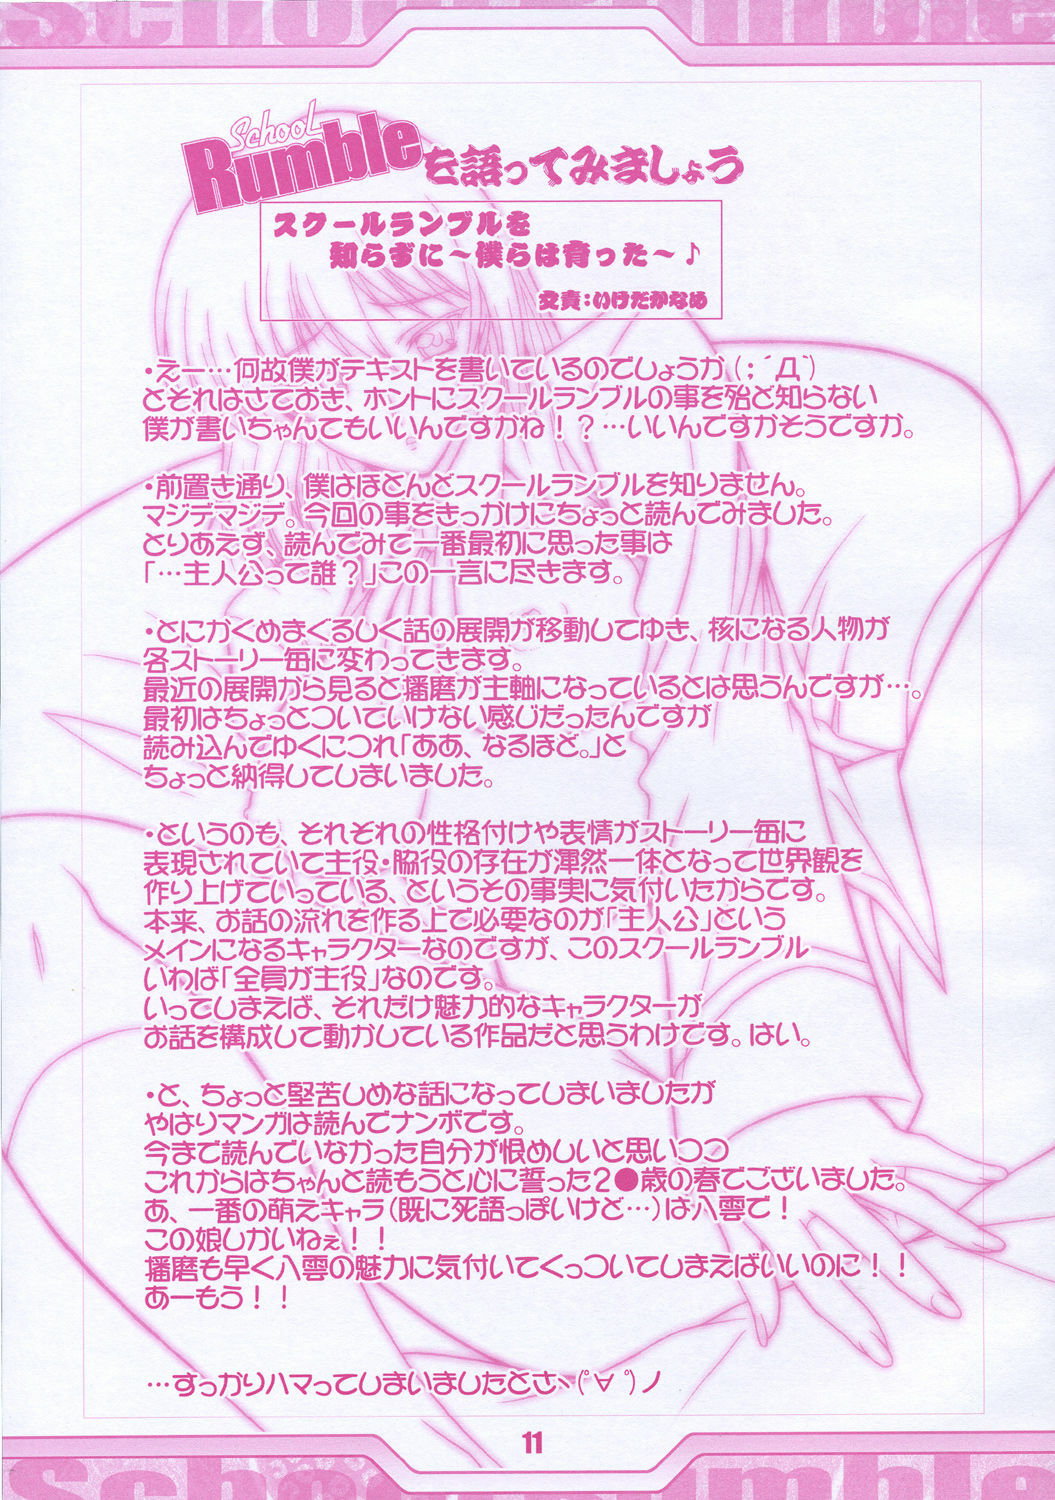 School Rumble
School Rumbleを語ってみましょう
スクールランブルを
知らずに～僕らは育った～♪
文責：いけだかなめ
・えー…何故僕がテキストを書いているのでしょうか(；´Д`)
とそれはさておき、ホントにスクールランブルの事を殆ど知らない
僕が書いちゃんてもいいんですかね！？…いいんですかそうですか。
・前置き通り、僕はほとんどスクールランブルを知りません。
マジデマジデ。今回の事をきっかけにちょっと読んでみました。
とりあえず、読んでみて一番最初に思った事は
「…主人公って誰？」この一言に尽きます。
・とにかくめまぐるしく話の展開が移動してゆき、核になる人物が
各ストーリー毎に変わってきます。
最近の展開から見ると播磨が主軸になっているとは思うんですが…。
最初はちょっとついていけない感じだったんですが
読み込んでゆくにつれ「ああ、なるほど。」と
ちょっと納得してしまいました。
・というのも、それぞれの性格付けや表情がストーリー毎に
表現されていて主役・脇役の存在が渾然一体となって世界観を
作り上げていっている、というその事実に気付いたからです。
本来、お話の流れを作る上で必要なのが「主人公」という
メインになるキャラクターなのですが、このスクールランブル
いわば「全員が主役」なのです。
いってしまえば、それだけ魅力的なキャラクターが
お話を構成して動かしている作品だと思うわけです。はい。
・と、ちょっと堅苦しめな話になってしまいましたが
やはりマンガは読んでナンボです。
今まで読んでいなかった自分が恨めしいと思いつつ
これからはちゃんと読もうと心に誓った2●歳の春でございました。
あ、一番の萌えキャラ(既に死語っぽいけど…)は八雲で！
この娘しかいねぇ！！
播磨も早く八雲の魅力に気付いてくっついてしまえばいいのに！！
あーもう！！
…すっかりハマってしまいましたとさヽ(ﾟ∀ﾟ)ノ
11
School Rumble